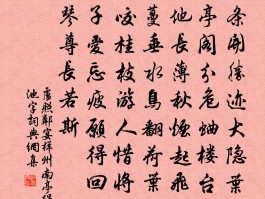 条開勝迹大隐葉
亭閣分危岫樓台
池長薄秋煙起飛
蔓垂水鳥翻荷葉
咬桂枝游人惜將
子愛忘疲願得回
琴尊長若斯
盧照鄰宴梓州南亭得
池字詞典網集